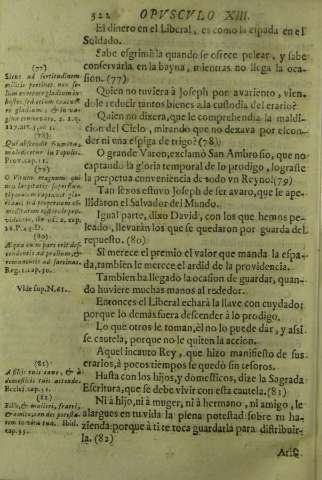 522 OPVSCVLO XIII.
El dinero en el Liberal, es como la espada en el
Soldado.
Sabe esgrimirla quando se ofrece pelear, y sabe
conservarla en la bayna, mientras no llega la oca-
sion. (77)
Quien no tuviera à Joseph por avariento, vien-
dole reducir tantos bienes à la custodia del erario?
Quien no dixera, que le comprehendia la maldi-
cion del Cielo, mirando que no dexava por escon-
der ni una espiga de trigo? (78)
O grande Varon, exclamò San Ambrosio, que no
captando la gloria temporal de lo prodigo, lograste
la perpetua conveniencia de todo vn Reyno! (79)
Tan lexos estuvo Joseph de ser avaro, que le ape-
llidaron el Salvador del Mundo.
Igual parte, dixo David, con los que hemos pe-
leado, llevaràn los que se quedaron por guarda del
repuesto. (80)
Si merece el premio el valor que manda la espa-
da, tambien le merece el ardid de la providencia.
Tambien ha llegado la ocasion de guardar, quan-
do huviere muchas manos al rededor.
Entonces el Liberal echarà la llave con cuydado;
porque lo demàs fuera descender à lo prodigo.
Lo que otros le toman, èl no lo puede dar, y assi
se cautela, porque no le quiten la accion.
Aquel incauto Rey, que hizo manifiesto de sus
erarios, à pocos tiempos le quedò sin tesoros.
Hasta con los hijos, y domesticos, dize la Sagrada
Escritura, que se debe vivir con esta cautela. (81)
Ni à hijo, ni à muger, ni à hermano, ni amigo, le
alargues en tu vida la plena potestad sobre tu ha-
zienda: porque à ti te toca guardarla para distribuir-
la. (82)
(77)
Sicut ad fortitudinem
militis pertinet non so-
2. 2. q.
(78)
Qui abscondit frumenta,
maledicetur in Populis.
Prov. cap. 11.
(79)
O Virum magnum qui
(80)
Reg. 1. cap. 30.
Vide sup. N. 61.
(81)
A filijs tuis cave, & à
domesticis tuis attende.
Eccles. cap. 32.
(82)
Filio, & mulieri, fratri,
& amico, non des potesta-
tem in vita tua. Ibid.
cap. 33.